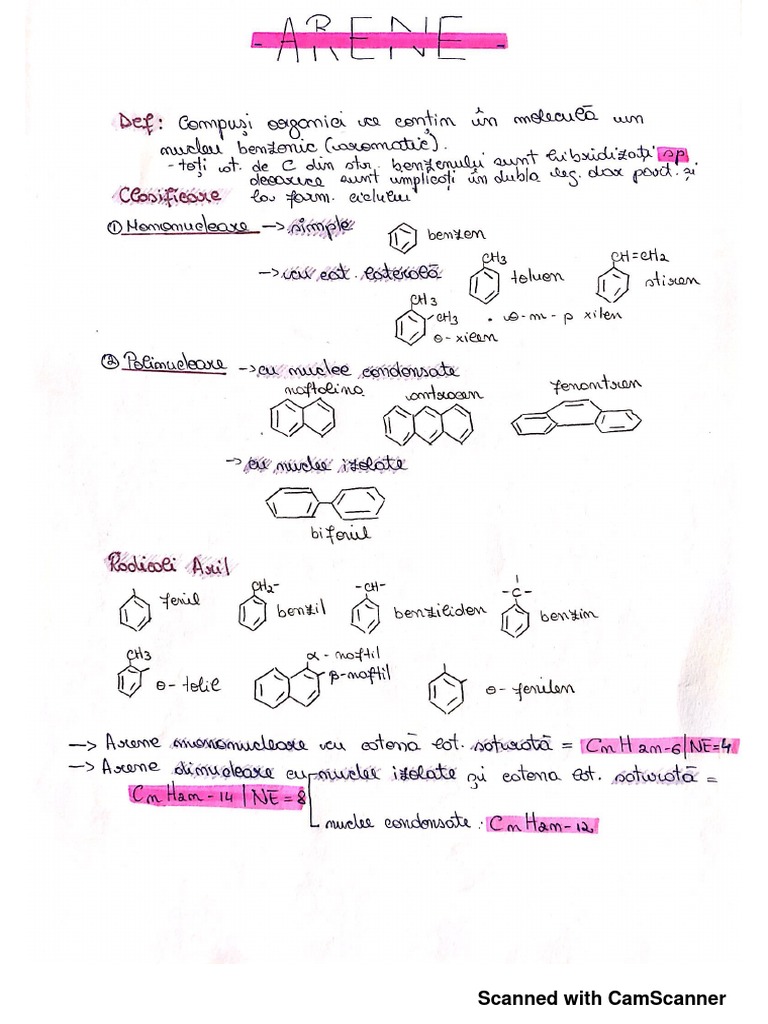 - ARENE -
Def: Compuși organici ce conțin în moleculă un
nucleu benzenic (aromatic).
- toți at. de C din str. benzenului sunt hibridizați sp
deoarece sunt implicați în dubla leg. dar part. și
Clasificare la form. ciclului
① Mononucleare -> simple benzen
-> cu cat. laterală CH3 toluen CH=CH2 stiren
CH3 CH3 o-xilen • o-m-p xilen
② Polinucleare -> cu nuclee condensate
naftalina antracen fenantren
-> cu nuclee izolate
bifenil
Radicali Aril
fenil CH2- benzil -CH- benziliden -C- benzin
CH3 o-tolil α-naftil β-naftil o-fenilen
-> Arene mononucleare cu catenă lat. saturată = CnH2n-6 | NE=4
-> Arene dinucleare cu nuclee izolate și catena lat. saturată =
CnH2n-14 | NE=8
nuclee condensate: CnH2n-12
Scanned with CamScanner